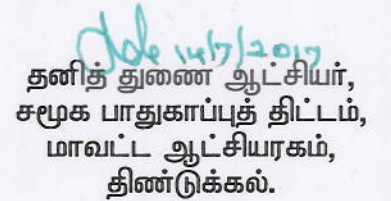 14/7/2017
தனித் துணை ஆட்சியர்,
சமூக பாதுகாப்புத் திட்டம்,
மாவட்ட ஆட்சியரகம்,
திண்டுக்கல்.